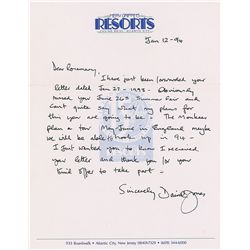 MERV GRIFFIN'S
RESORTS
CASINO HOTEL ATLANTIC CITY
Jan 12-94
Dear Rosemary,
I have just been forwarded your
letter dated Jan 27-1993 - Obviously
missed your June 26th Summer Fair and
Can't quite say what my plans for
this year are going to be. The Monkees
plan a tour May/June in England, maybe
we will be able to hook up in 94 -
I just wanted you to know I received
your letter and thank you for your
kind offer to take part -
Sincerely David Jones
933 Boardwalk • Atlantic City, New Jersey 08401-7329 • (609) 344-6000